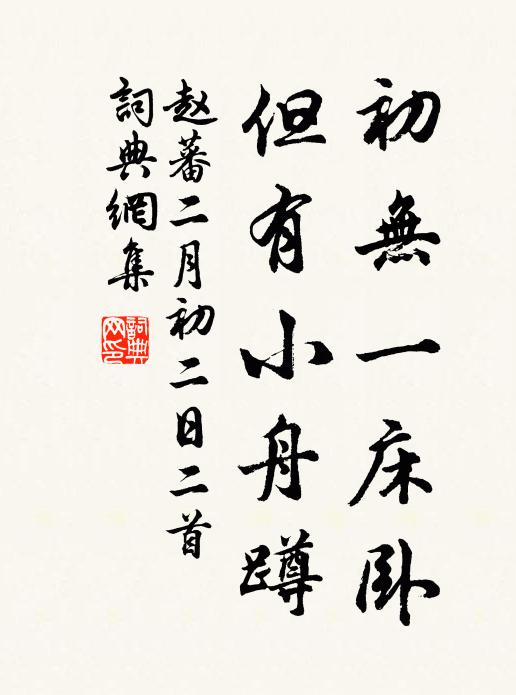 初無一床卧
但有小舟蹲
赵蕃二月初二日二首
詞典網集
詞典网印